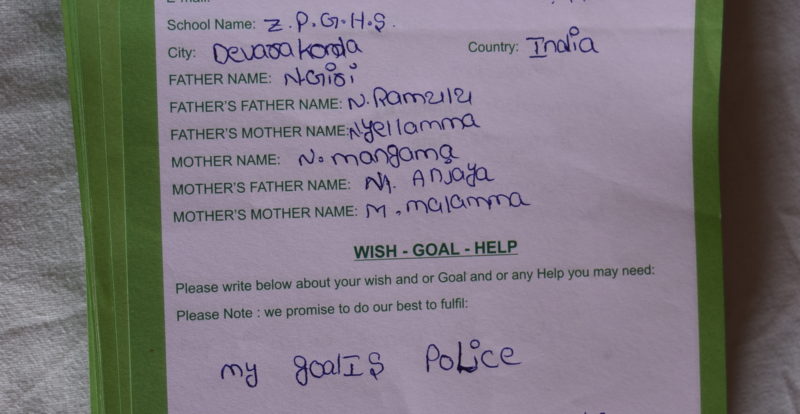 School Name: Z.P.G.H.S.
City: Devarakonda Country: India
FATHER NAME: N.Giri
FATHER'S FATHER NAME: N.Ramulu
FATHER'S MOTHER NAME: N.yellamma
MOTHER NAME: N. mangama
MOTHER'S FATHER NAME: Anjaya
MOTHER'S MOTHER NAME: M. malamma
WISH - GOAL - HELP
Please write below about your wish and or Goal and or any Help you may need:
Please Note : we promise to do our best to fulfil:
my goal IS PoLice